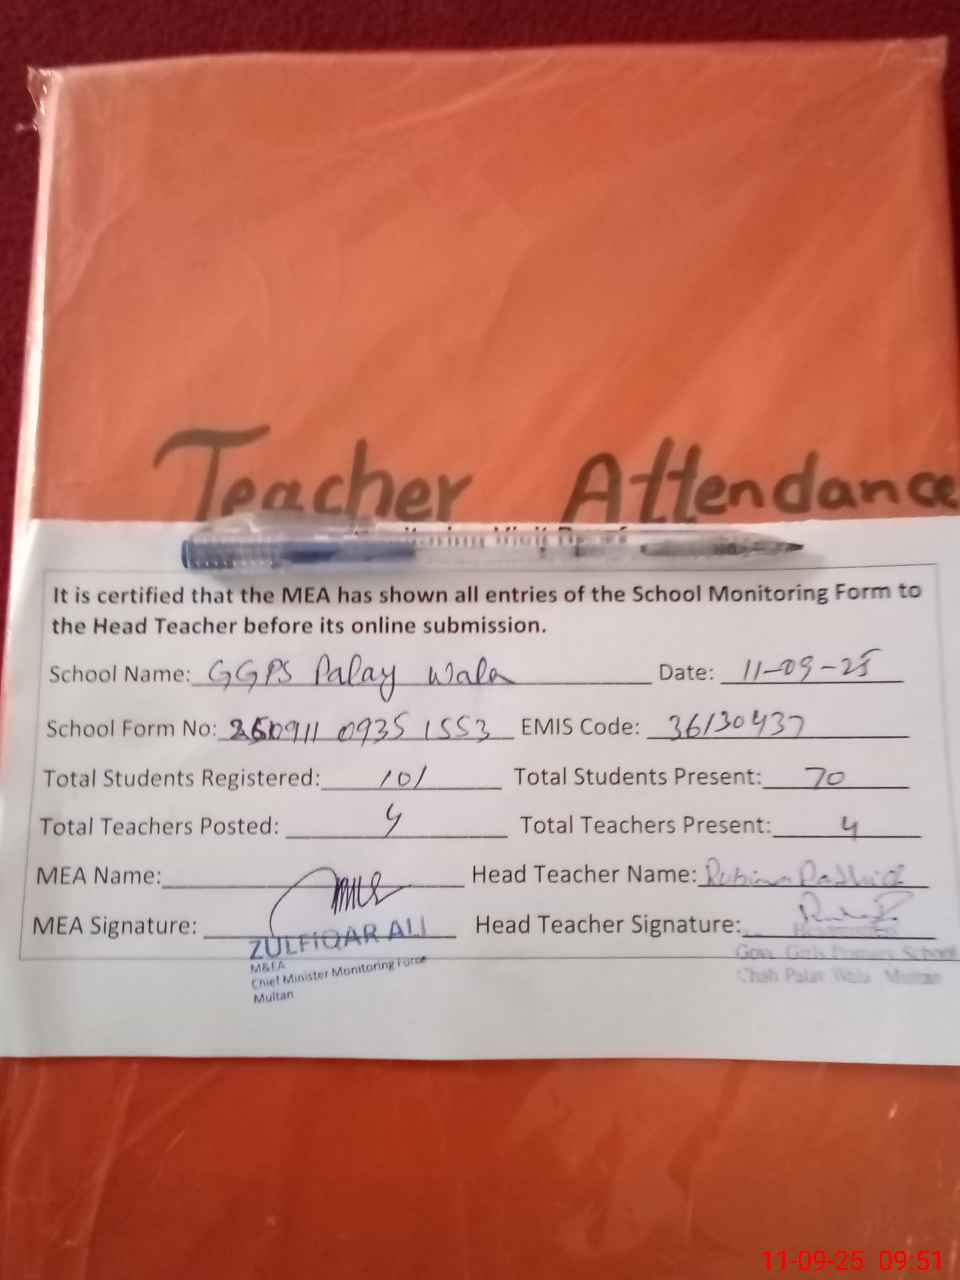 Teacher Attendance
It is certified that the MEA has shown all entries of the School Monitoring Form to
the Head Teacher before its online submission.
School Name: GGPS Palay Wala Date: 11-09-25
School Form No: 250911 0935 1553 EMIS Code: 36130437
Total Students Registered: 101 Total Students Present: 70
Total Teachers Posted: 4 Total Teachers Present: 4
MEA Name: Head Teacher Name: Rubina Rashid
MEA Signature: Head Teacher Signature:
ZULFIQAR ALI
M&EA
Chief Minister Monitoring Force
Multan
Govt. Girls Primary School
Chah Palay Wala Multan
11-09-25 09:51